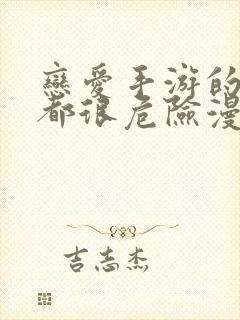 戀愛手游的
都很危險漫
吉志杰